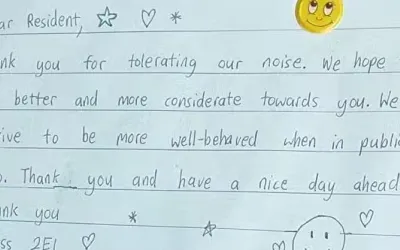 ar Resident,
nk you for tolerating our noise. We hope
better and more considerate towards you. We
ive to be more well-behaved when in public
o. Thank you and have a nice day ahead
nk you
ss 2E1